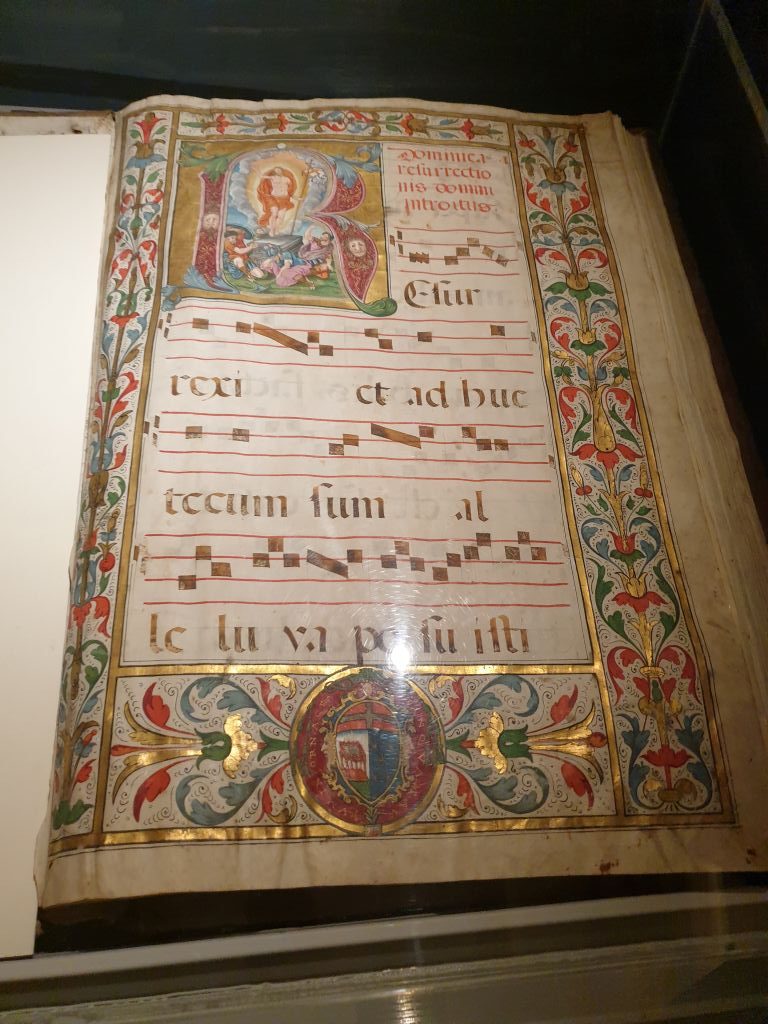 Dominica
resurrectio
nis domini
Introitus.
REsur
rexi et ad huc
tecum sum al
le lu ya po su isti